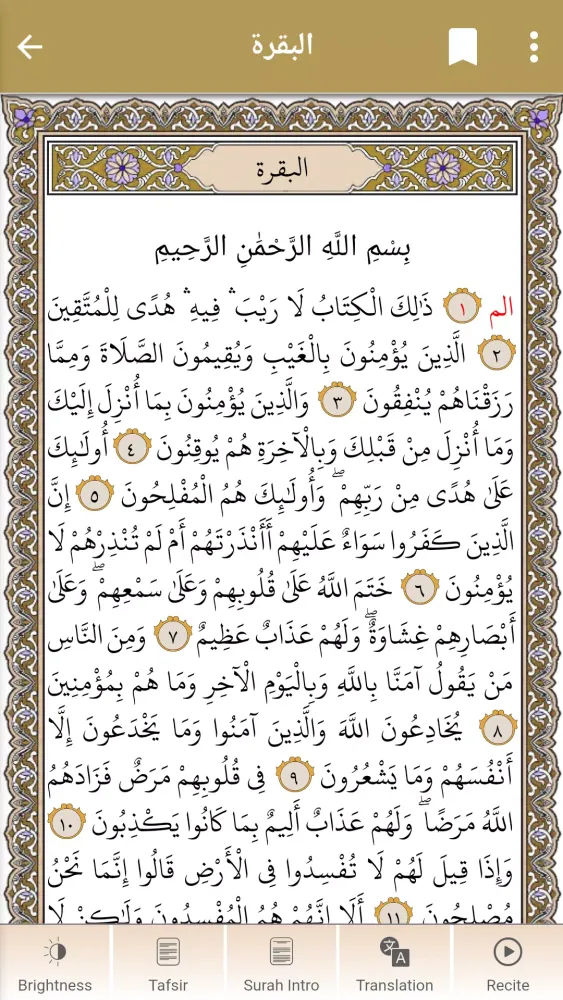 البقرة
البقرة
بِسْمِ اللَّهِ الرَّحْمَٰنِ الرَّحِيمِ
الم ١ ذَٰلِكَ الْكِتَابُ لَا رَيْبَ ۛ فِيهِ ۛ هُدًى لِلْمُتَّقِينَ
٢ الَّذِينَ يُؤْمِنُونَ بِالْغَيْبِ وَيُقِيمُونَ الصَّلَاةَ وَمِمَّا
رَزَقْنَاهُمْ يُنْفِقُونَ ٣ وَالَّذِينَ يُؤْمِنُونَ بِمَا أُنْزِلَ إِلَيْكَ
وَمَا أُنْزِلَ مِنْ قَبْلِكَ وَبِالْآخِرَةِ هُمْ يُوقِنُونَ ٤ أُولَٰئِكَ
عَلَىٰ هُدًى مِنْ رَبِّهِمْ ۖ وَأُولَٰئِكَ هُمُ الْمُفْلِحُونَ ٥ إِنَّ
الَّذِينَ كَفَرُوا سَوَاءٌ عَلَيْهِمْ أَأَنْذَرْتَهُمْ أَمْ لَمْ تُنْذِرْهُمْ لَا
يُؤْمِنُونَ ٦ خَتَمَ اللَّهُ عَلَىٰ قُلُوبِهِمْ وَعَلَىٰ سَمْعِهِمْ ۖ وَعَلَىٰ
أَبْصَارِهِمْ غِشَاوَةٌ ۖ وَلَهُمْ عَذَابٌ عَظِيمٌ ٧ وَمِنَ النَّاسِ
مَنْ يَقُولُ آمَنَّا بِاللَّهِ وَبِالْيَوْمِ الْآخِرِ وَمَا هُمْ بِمُؤْمِنِينَ
٨ يُخَادِعُونَ اللَّهَ وَالَّذِينَ آمَنُوا وَمَا يَخْدَعُونَ إِلَّا
أَنْفُسَهُمْ وَمَا يَشْعُرُونَ ٩ فِي قُلُوبِهِمْ مَرَضٌ فَزَادَهُمُ
اللَّهُ مَرَضًا ۖ وَلَهُمْ عَذَابٌ أَلِيمٌ بِمَا كَانُوا يَكْذِبُونَ ١٠
وَإِذَا قِيلَ لَهُمْ لَا تُفْسِدُوا فِي الْأَرْضِ قَالُوا إِنَّمَا نَحْنُ
مُصْلِحُونَ ١١ أَلَا إِنَّهُمْ هُمُ الْمُفْسِدُونَ وَلَٰكِنْ لَا
Brightness Tafsir Surah Intro Translation Recite